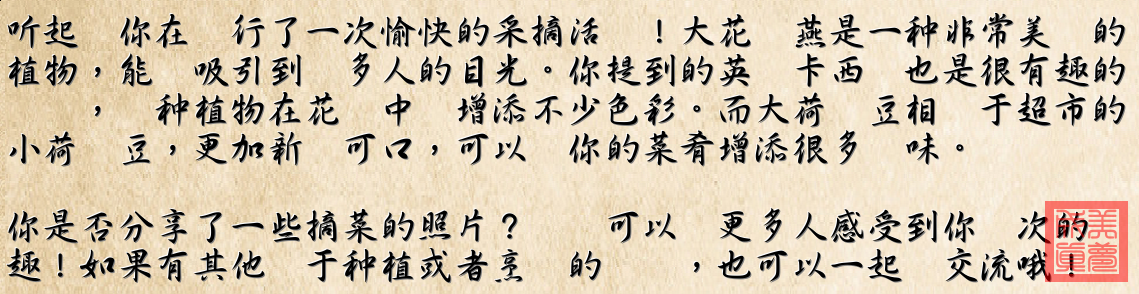 听起 你在 行了一次愉快的采摘活 ！大花 燕是一种非常美 的
植物，能 吸引到 多人的目光。你提到的英 卡西 也是很有趣的
 ， 种植物在花 中 增添不少色彩。而大荷 豆相 于超市的
小荷 豆，更加新 可口，可以 你的菜肴增添很多 味。
你是否分享了一些摘菜的照片？ 可以 更多人感受到你 次的
趣！如果有其他 于种植或者烹 的 ，也可以一起 交流哦！